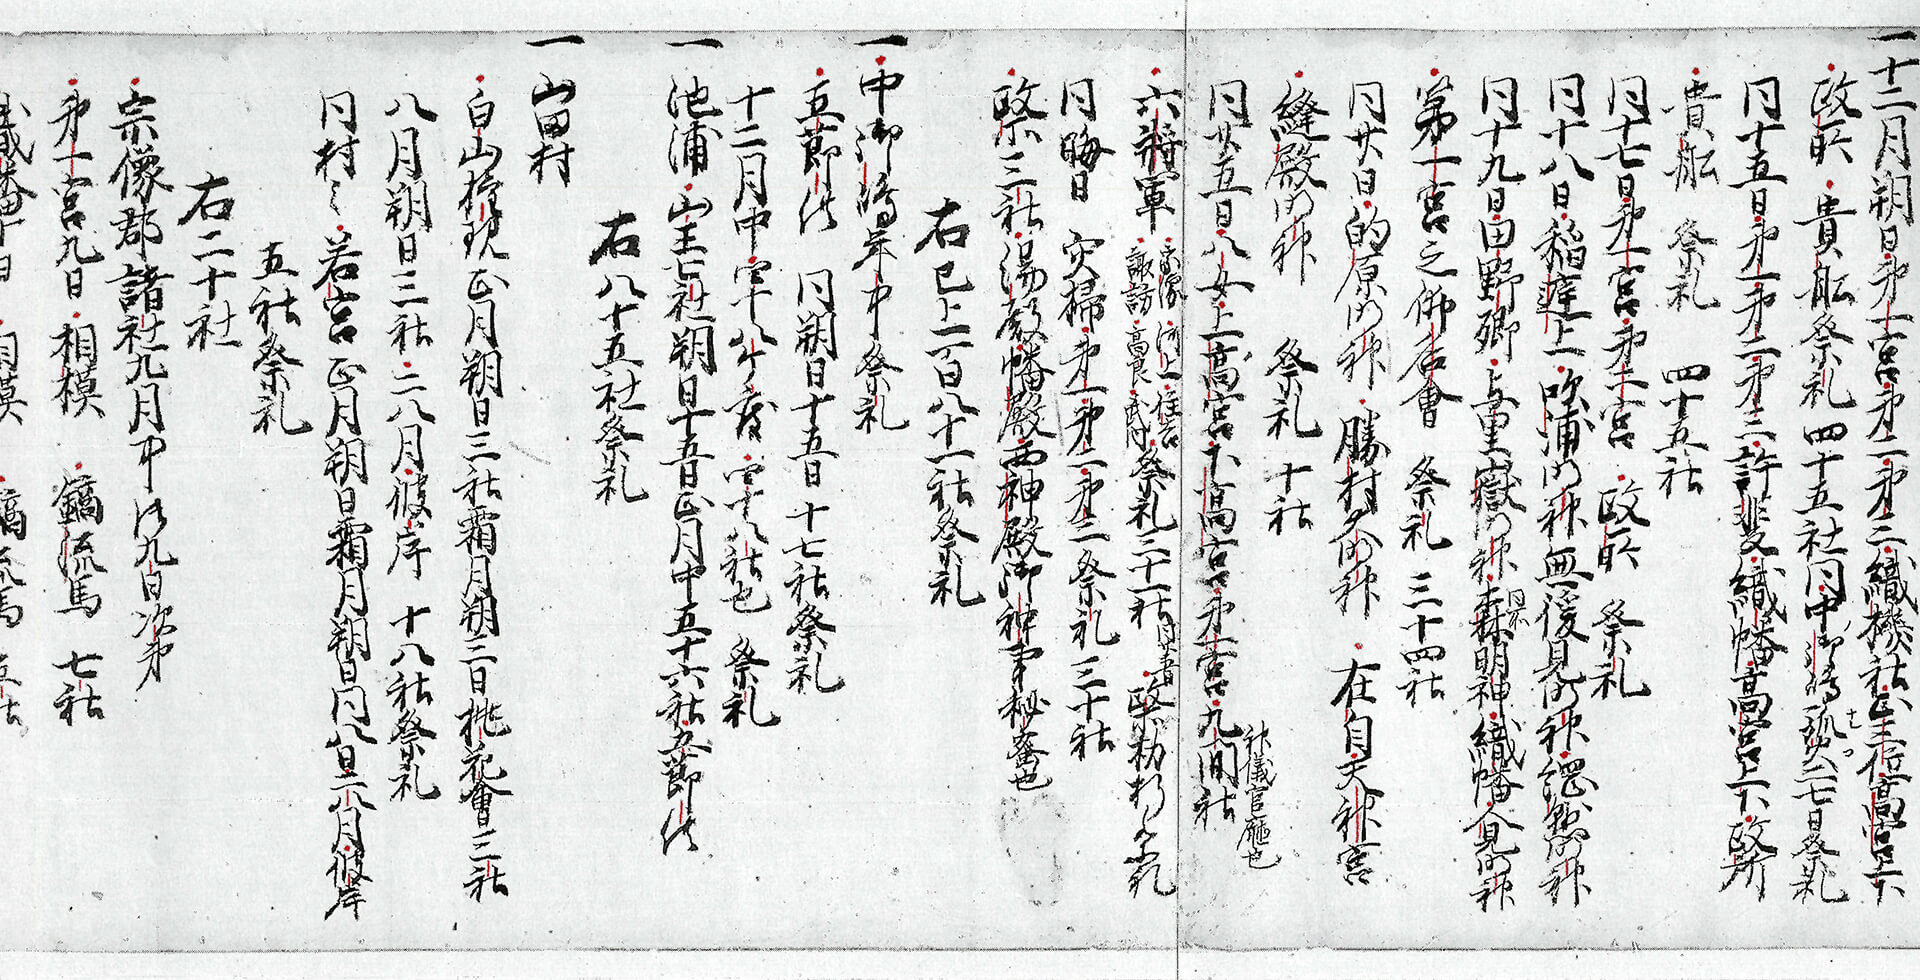 一十二月朔日第一宮第二第三織機社正三位高宮上下
政所貴舩祭礼四十五社同中御嶋狐火二七日祭礼
同十五日第一第二第三許斐織幡高宮上下政所
貴舩 祭礼 四十五社
同十七日第一宮第二宮 政所 祭礼
同十八日稲庭上吹浦明神無後見明神縫殿明神
同十九日田野郷与重嶽明神森明神織幡今見明神
第一宮之佛名會 祭礼 三十四社
同廿日的原明神勝村明神 在自天神宮
縫殿明神 祭礼 十社
同廿五日八女上高宮下高宮第一宮九間社
神儀官廳也
六将軍 宗像 河上 住吉 諏訪 高良 祭礼三十一社
同晦日 灾掃第一第二第三祭礼三十社
政所三社湯殿幡殿両神殿御神事秘奥也
右已上二百八十一社祭礼
一中御嶋年中祭礼
五節供 同朔日十五日十七社祭礼
十二月中 四十八社也 祭礼
一池浦山王七社朔日十五日正月中五十六社五節供
右八十五社祭礼
一山田村
白山権現正月朔日三社霜月朔二日桃花會三社
八月朔日三社二八月彼岸 十八社祭礼
同村々若宮正月朔日霜月朔日同八日二八月彼岸
五社祭礼
右二十社
宗像郡諸社九月中御九日次第
第一宮九日相模 鏑流馬 七社
織幡十日 相模 鏑流馬 五社